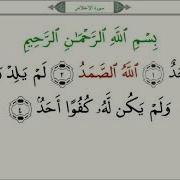 سورة الإخلاص
بِسْمِ اللَّهِ الرَّحْمَٰنِ الرَّحِيمِ
١ اللَّهُ الصَّمَدُ ٢ لَمْ يَلِدْ
وَلَمْ يَكُن لَّهُ كُفُوًا أَحَدٌ ٤